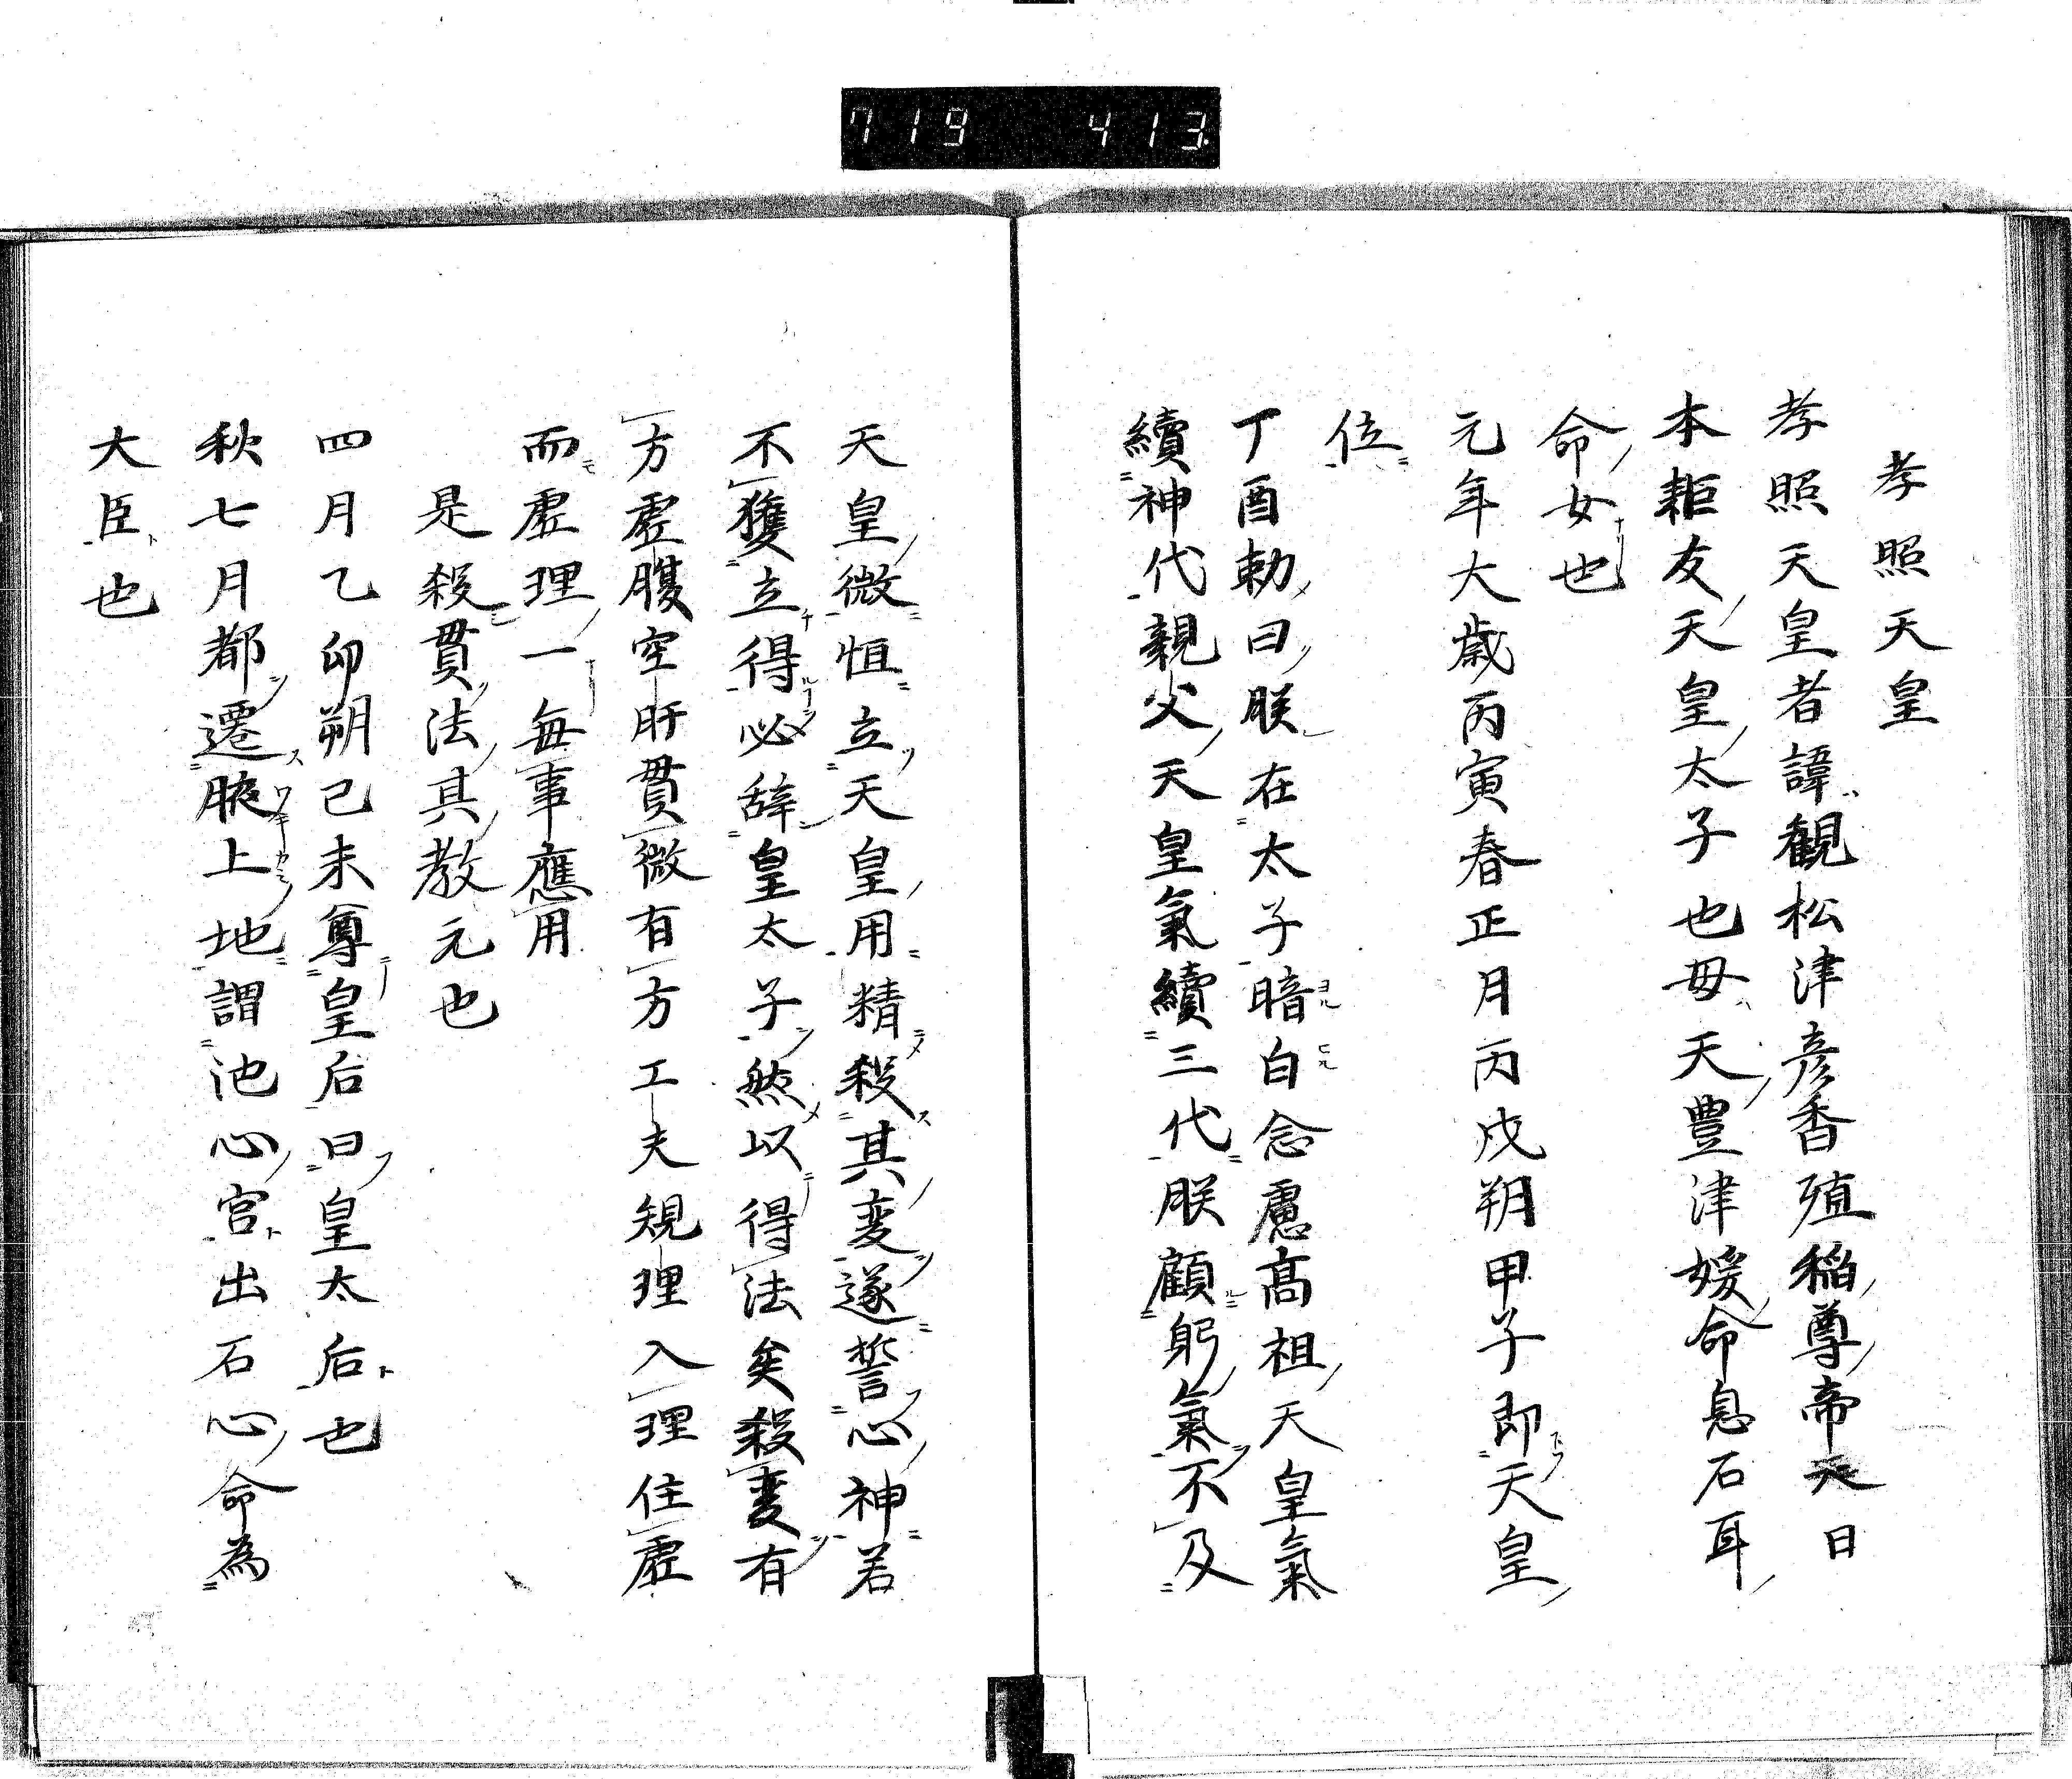 719 413
孝照天皇
孝照天皇者諱観松津彦香殖稲尊帝天日
本耟友天皇太子也母天豊津媛命息石耳
命女也
元年大歳丙寅春正月丙戌朔甲子即天皇
位
丁酉勅曰朕在太子暗白念慮髙祖天皇氣
續神代親父天皇氣續三代朕顧躬氣不及
天皇微恒立天皇用精殺其変遂誓心神若
不獲立得必辞皇太子然以得法矣殺変有
方虚腹空肝貫微有方工夫規理入理住虚
而虚理一每事應用
是殺貫法其教元也
四月乙卯朔己未尊皇后曰皇太后也
秋七月都遷腋上地謂池心宮出石心命為
大臣也